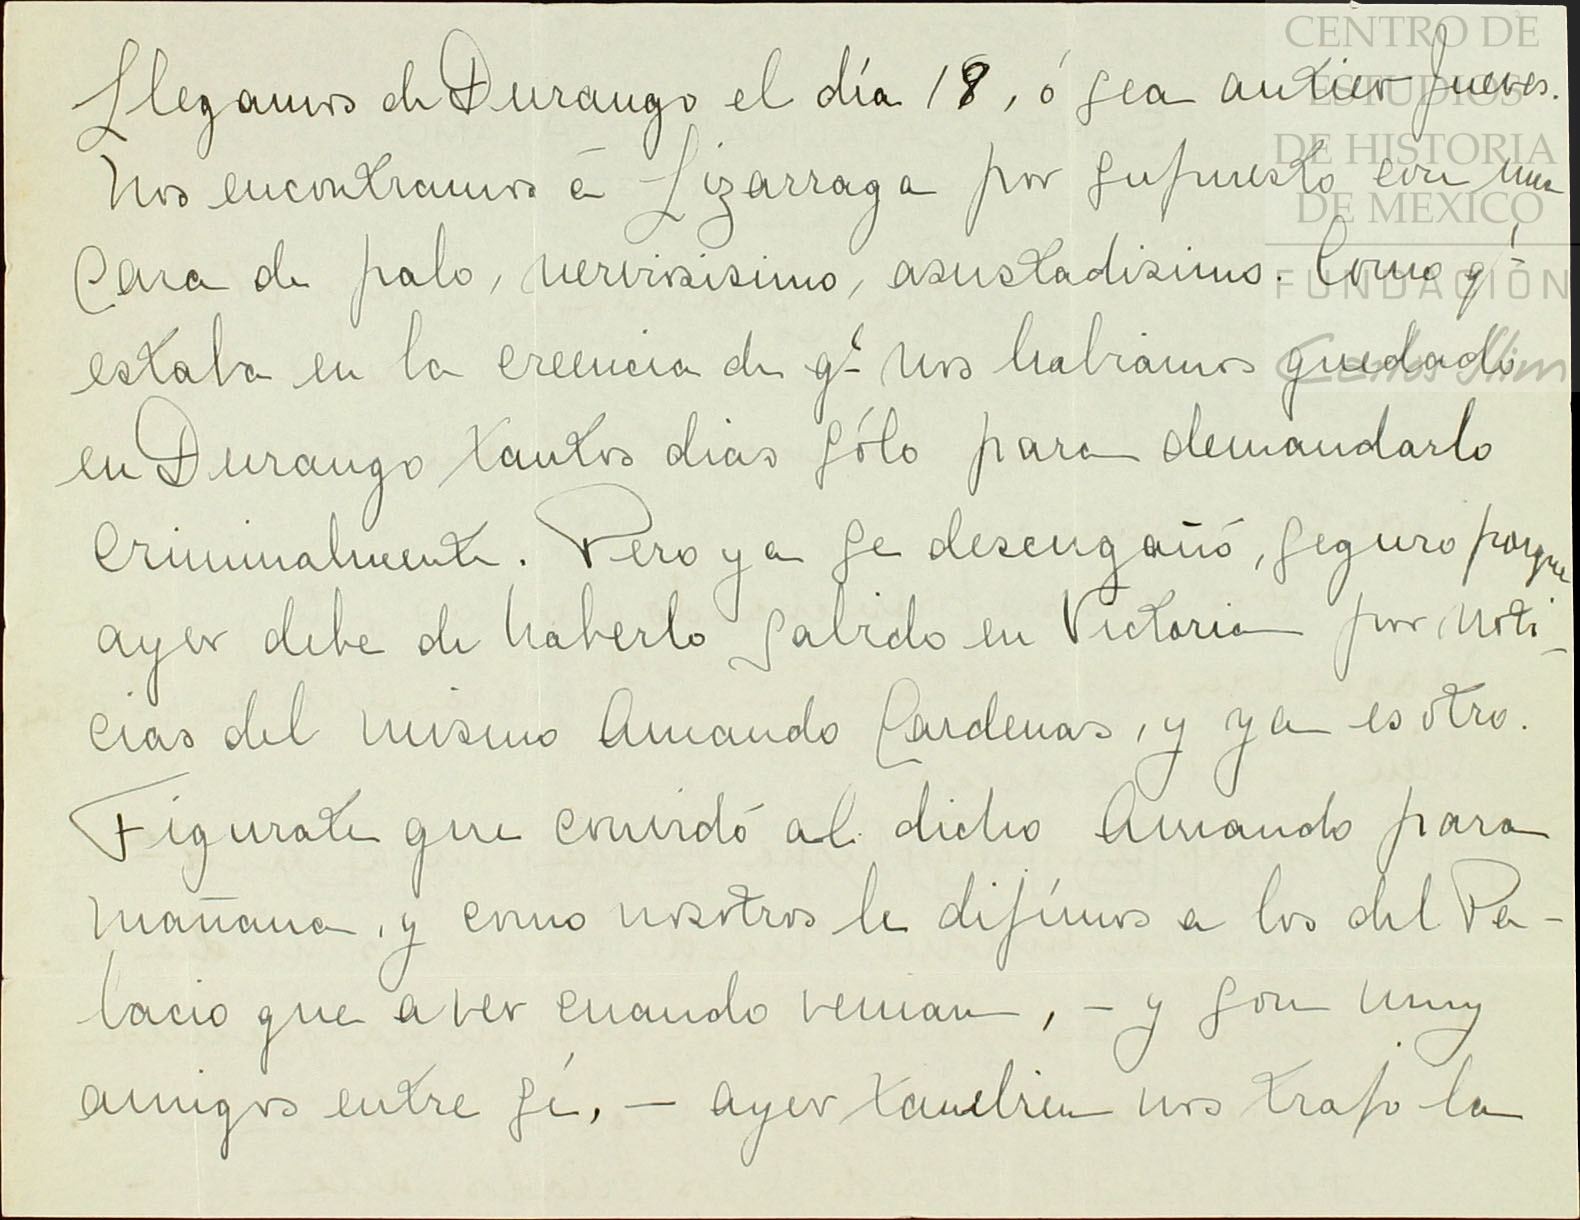 CENTRO DE
ESTUDIOS
DE HISTORIA
DE MEXICO
FUNDACIÓN
Carlos Slim
Llegamos de Durango el día 18, ó sea antier jueves.
Nos encontramos á Lizarraga por supuesto con una
cara de palo, nerviosisimo, asustadisimo. Como qᵉ
estaba en la creencia de qᵉ nos habiamos quedado
en Durango tantos dias sólo para demandarlo
criminalmente. Pero ya se desengañó, seguro porque
ayer debe de haberlo sabido en Victoria por noti-
cias del mismo Amando Cardenas, y ya es otro.
Figurate que convidó al dicho Amando para
mañana, y como nosotros le dijímos a los del Pa-
lacio que a ver cuando venian, - y son muy
amigos entre sí, - ayer tambien nos trajo la